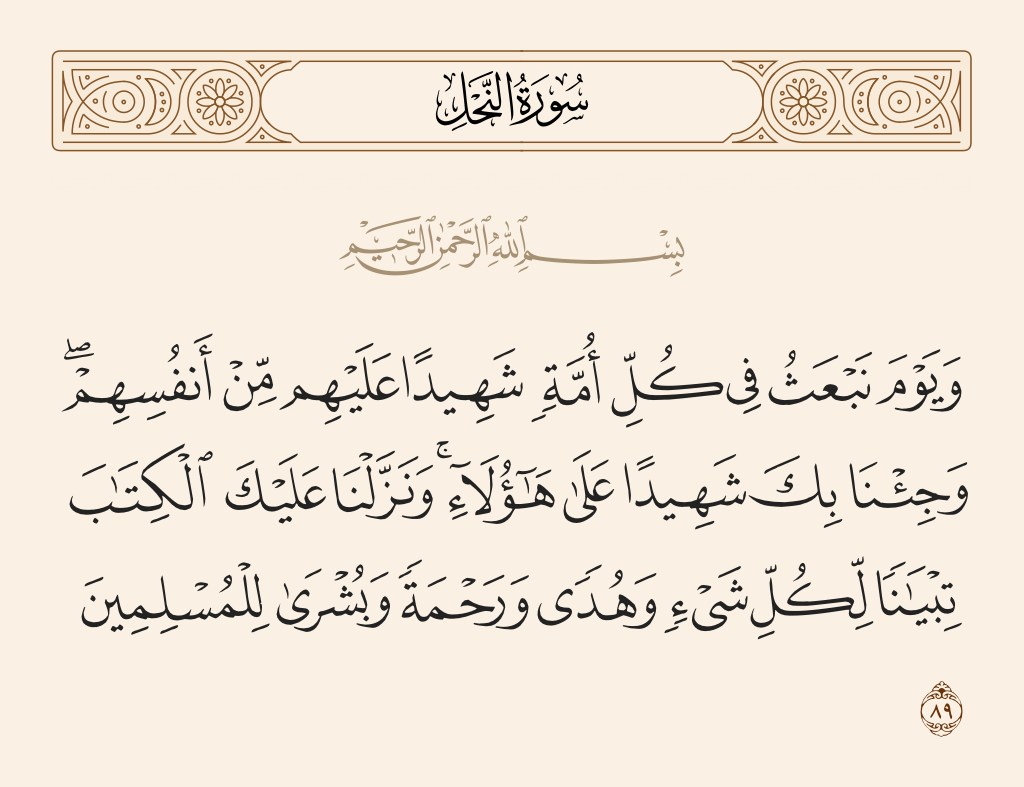 سُورَةُ النَّحْلِ
بِسْمِ ٱللَّهِ ٱلرَّحْمَٰنِ ٱلرَّحِيمِ
وَيَوْمَ نَبْعَثُ فِى كُلِّ أُمَّةٍ شَهِيدًا عَلَيْهِم مِّنْ أَنفُسِهِمْ ۖ
وَجِئْنَا بِكَ شَهِيدًا عَلَىٰ هَٰٓؤُلَآءِ ۚ وَنَزَّلْنَا عَلَيْكَ ٱلْكِتَٰبَ
تِبْيَٰنًا لِّكُلِّ شَىْءٍ وَهُدًى وَرَحْمَةً وَبُشْرَىٰ لِلْمُسْلِمِينَ
٨٩